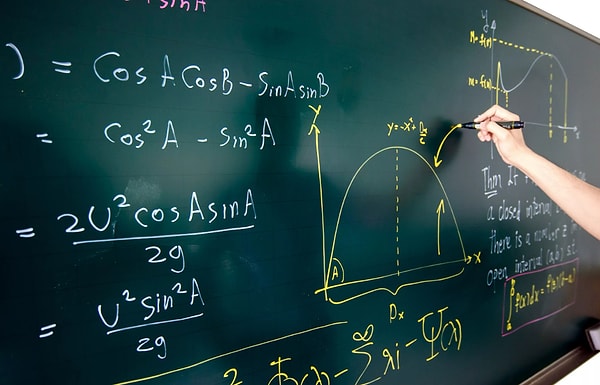 sinA
) = CosACosB - SinAsinB
= Cos²A - Sin²A
= 2U²cosAsinA / 2g
= U²Sin²A / 2g
Y
X
A
Dx
M = f(x)
m = f(x)
y
Thm
a closed interval
there is a number z
open interval (a,b) s.t.
∫ f(x)dx = f(z)(b-a)
∞
Σ λi - Ψ(λ)